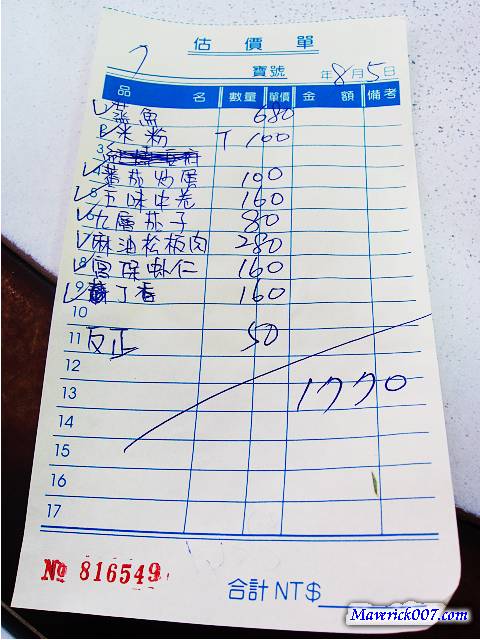 估價單
7
寶號 年8月5日
品名 數量 單價 金額 備考
1 蒸魚 680
2 米粉 T 100
3
4 蕃茄炒蛋 100
5 五味中卷 160
6 九層茄子 80
7 麻油松板肉 280
8 宮保蝦仁 160
9 丁香 160
10
11 反正 50
12
13 1770
14
15
16
17
№ 816549
合計 NT$
Maverick007.com